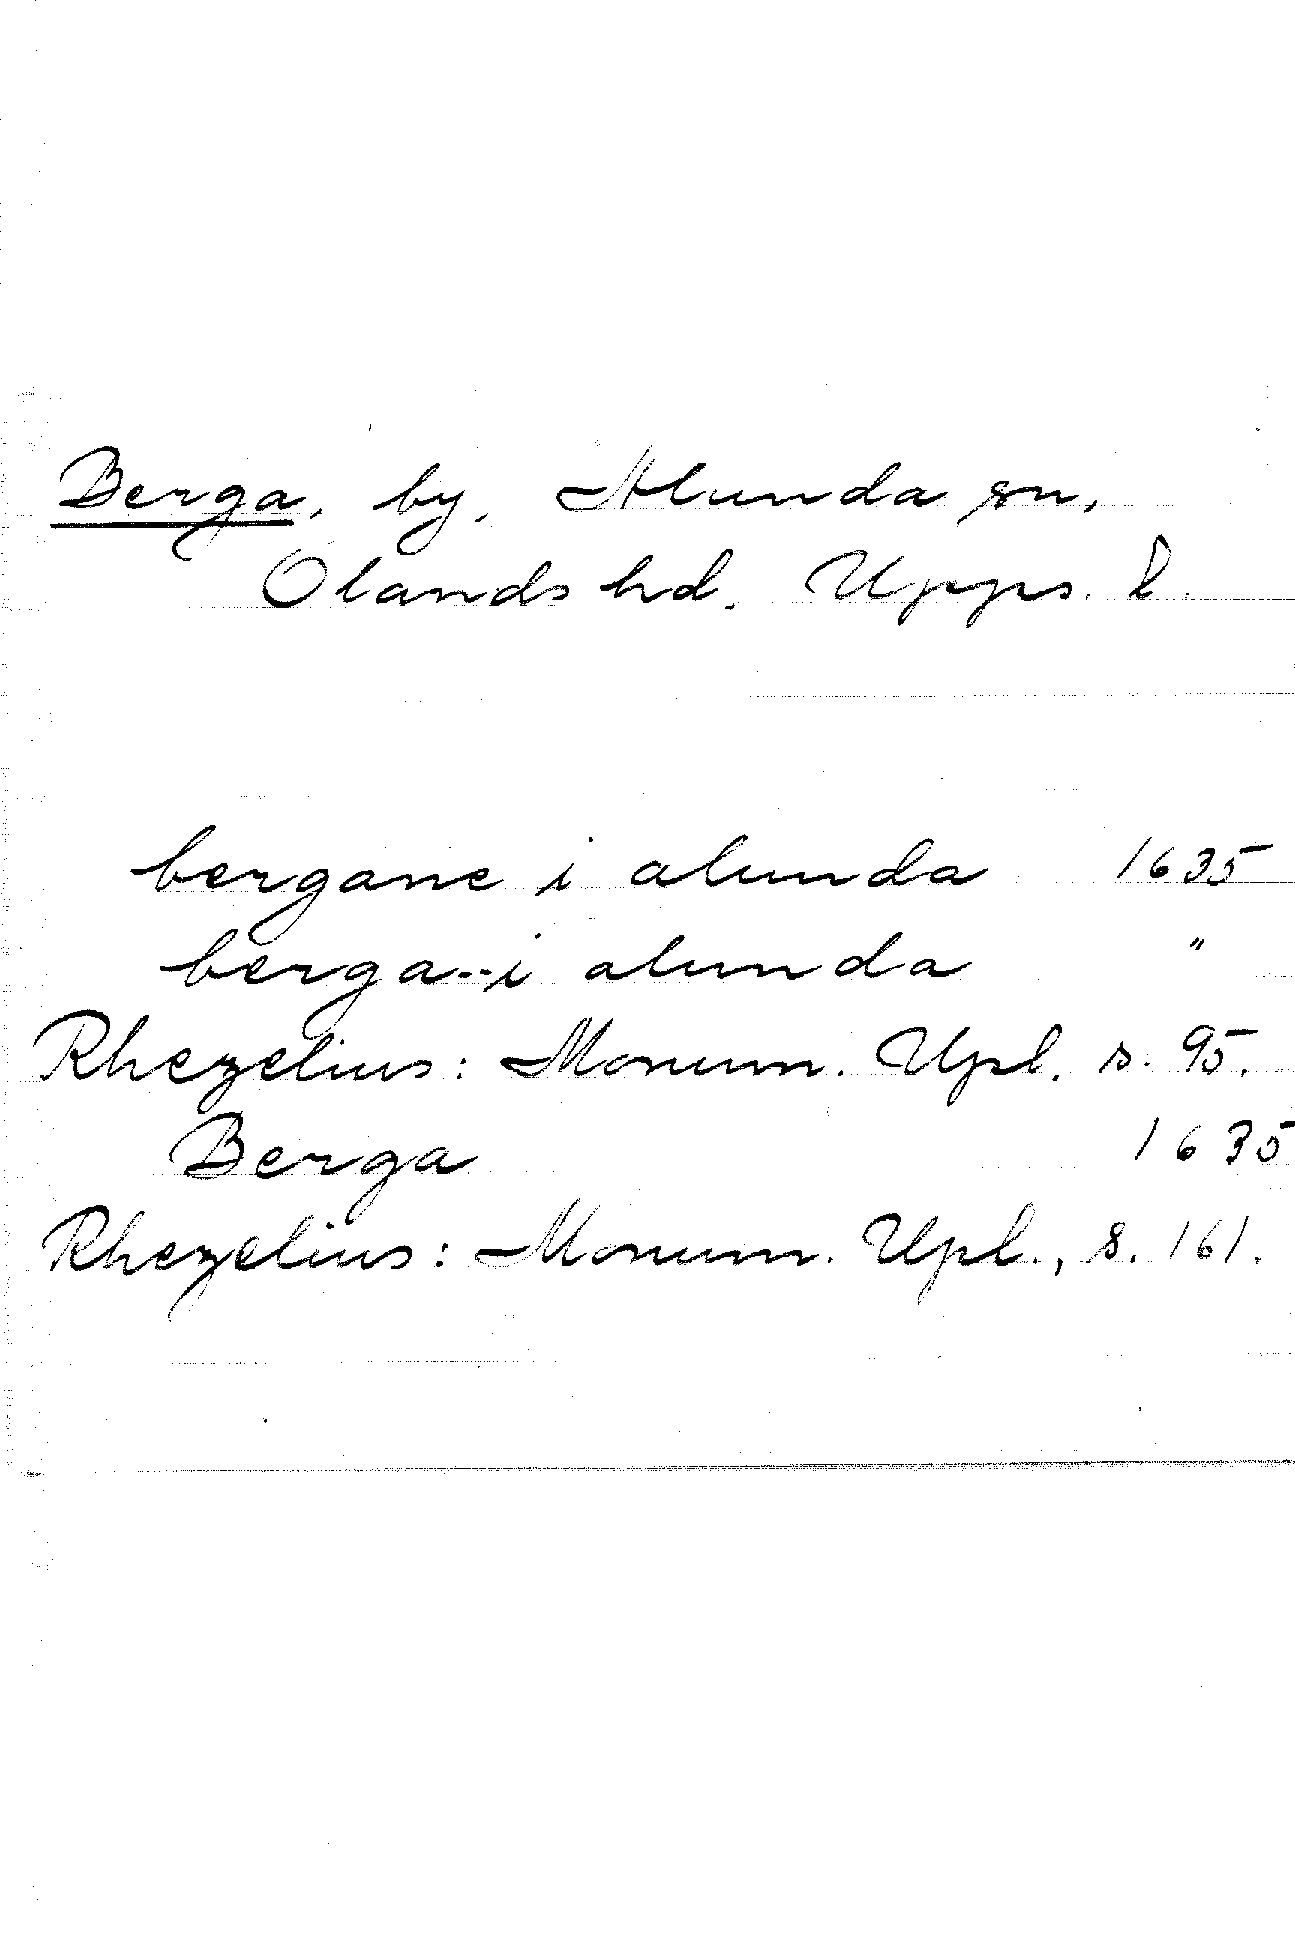 Berga, by, Alunda sn,
Olands hd. Upps. l.
bergane i alunda 1635
berga--i alunda "
Rhezelius: Monum. Upl. s. 95.
Berga 1635
Rhezelius: Monum. Upl., s. 161.